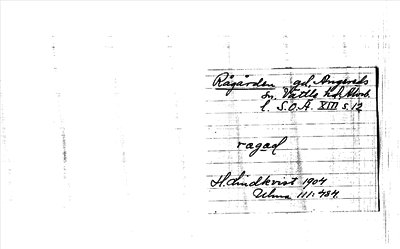 Rågården gd, Angereds
sn, Vättle hd, Älvsb.
l. S.O.Ä. XIII s. 12
ragad
H. Lindkvist 1904
Ulma 111:484.